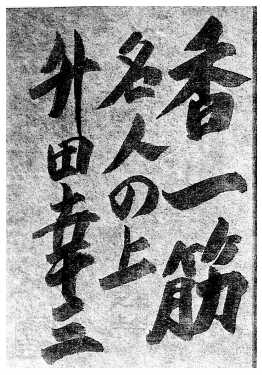 香一筋
名人の上
升田幸三